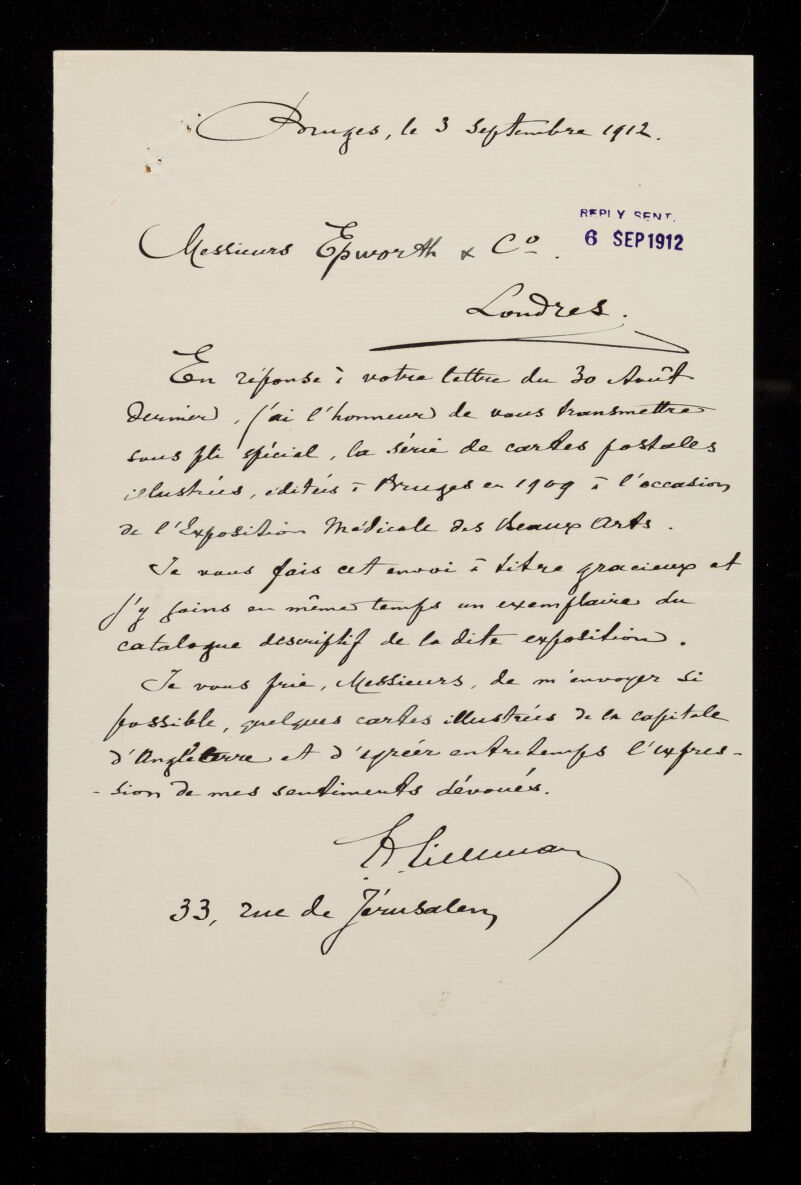 Bruges, le 3 Septembre 1912.
REPLY SENT.
6 SEP 1912
Messieurs Epworth & Cº.
Londres.
En réponse à votre lettre du 30 Août
dernier, j'ai l'honneur de vous transmettre
sous pli spécial, la série de cartes postales
illustrées, éditées à Bruges en 1909 à l'occasion
de l'Exposition Médicale des Beaux Arts.
Je vous fais cet envoi à titre gracieux et
j'y joins en même temps un exemplaire du
catalogue descriptif de la dite exposition.
Je vous prie, Messieurs, de m'envoyer si
possible, quelques cartes illustrées de la capitale
d'Angleterre et d'agréer entretemps l'expres-
-sion de mes sentiments dévoués.
33, rue de Jérusalem